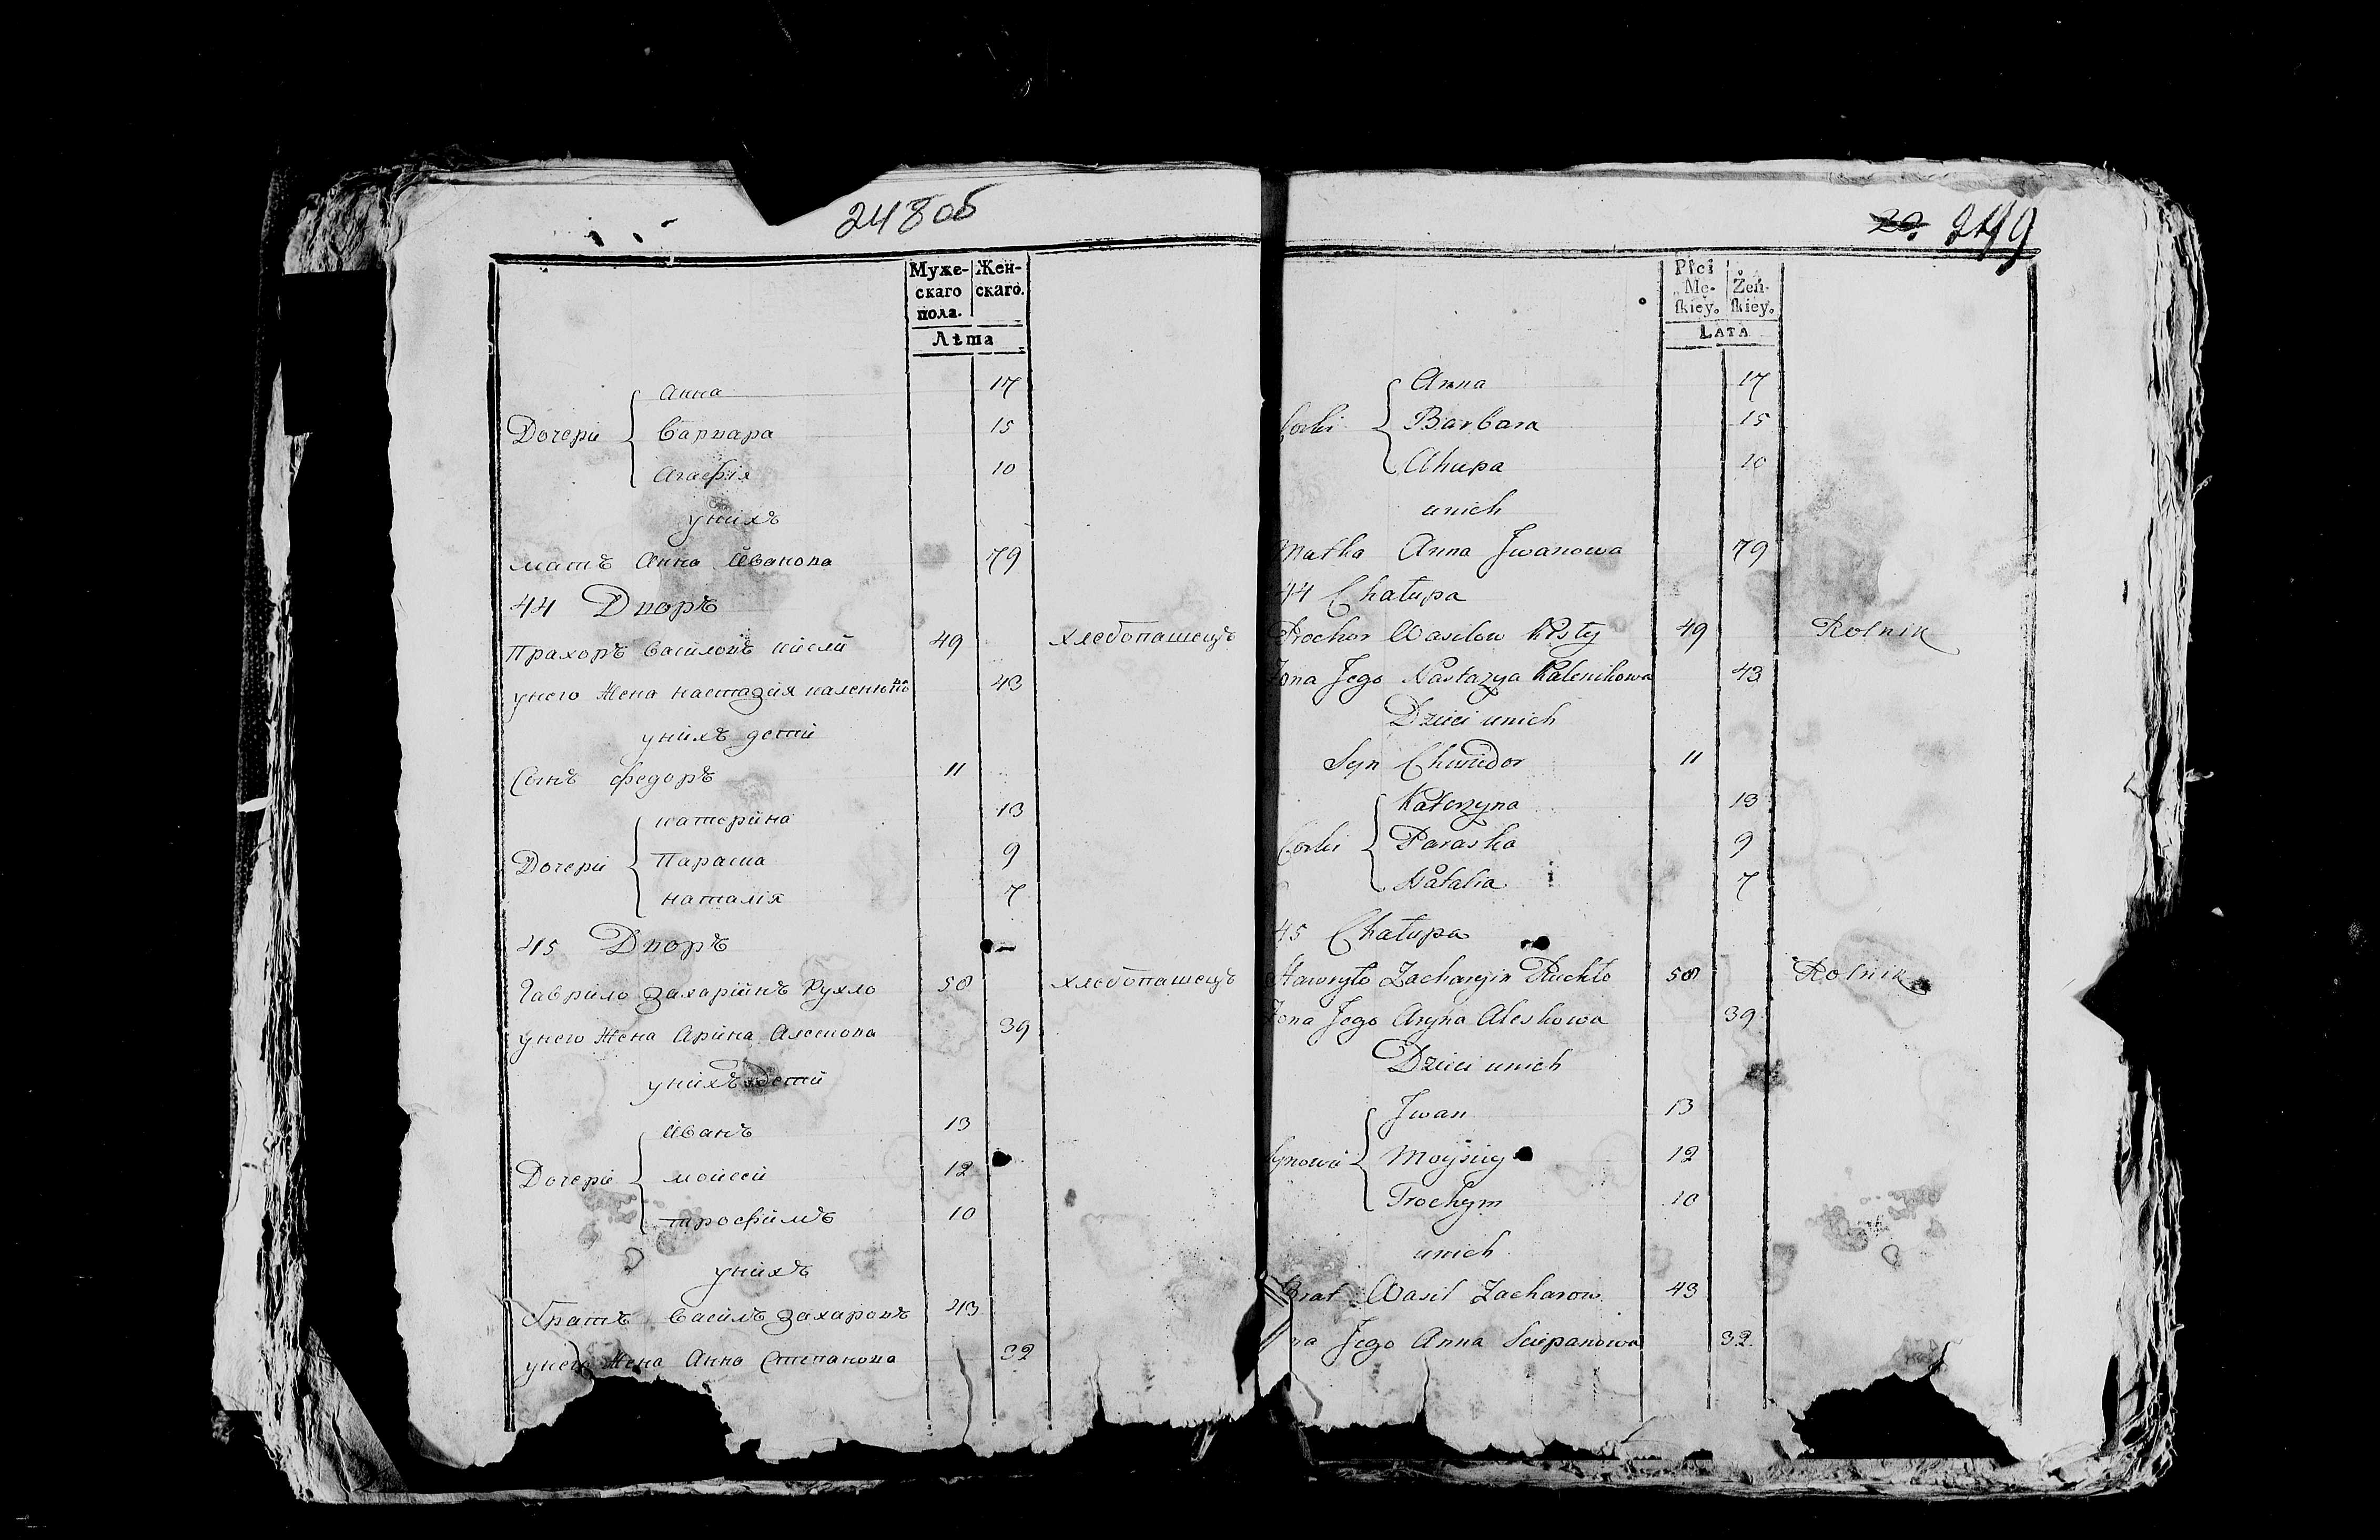 248 об
Муже-
скаго
пола.
Жен-
скаго.
Лѣта
Анна 17
Дочери Варвара 15
Агафія 10
унихъ
матъ Анна Иванова 79
44 Дворъ
Прахоръ Василовъ 49 хлебопашецъ
унего Жена настазия 43
унихъ дети
Сынъ федоръ 11
катерина 13
Дочери Параска 9
наталія 7
45 Дворъ —
Гаврило Захарійнъ Рухло 58 хлебопашецъ
унего Жена Арина Алескова 39
унихъ дети
Иванъ 13
Дочери мойсей 12
трофимъ 10
унихъ
братъ Василъ Захаровъ 43
унего Жена Анна Степанова 32
20. 249
Płci
Mę-
skiey.
Żeń-
skiey.
Lata
Anna 17
Corki Barbara 15
Ahapa 10
unich
Matka Anna Jwanowa 79
44 Chałupa
Prochor Wasilow 49 Rolnik
Żona Jego Nastazya Kalenikowa 43
Dzieci unich
Syn Chwiedor 11
Katerzyna 13
Corki Paraska 9
Natalia 7
45 Chałupa
Hawryło Zacharyin Ruchło 58 Rolnik
Żona Jego Aryna Aleskowa 39
Dzieci unich
Jwan 13
Synowie Moysiey 12
Trochym 10
unich
Brat Wasil Zacharow 43
na Jego Anna Sciepanowa 32